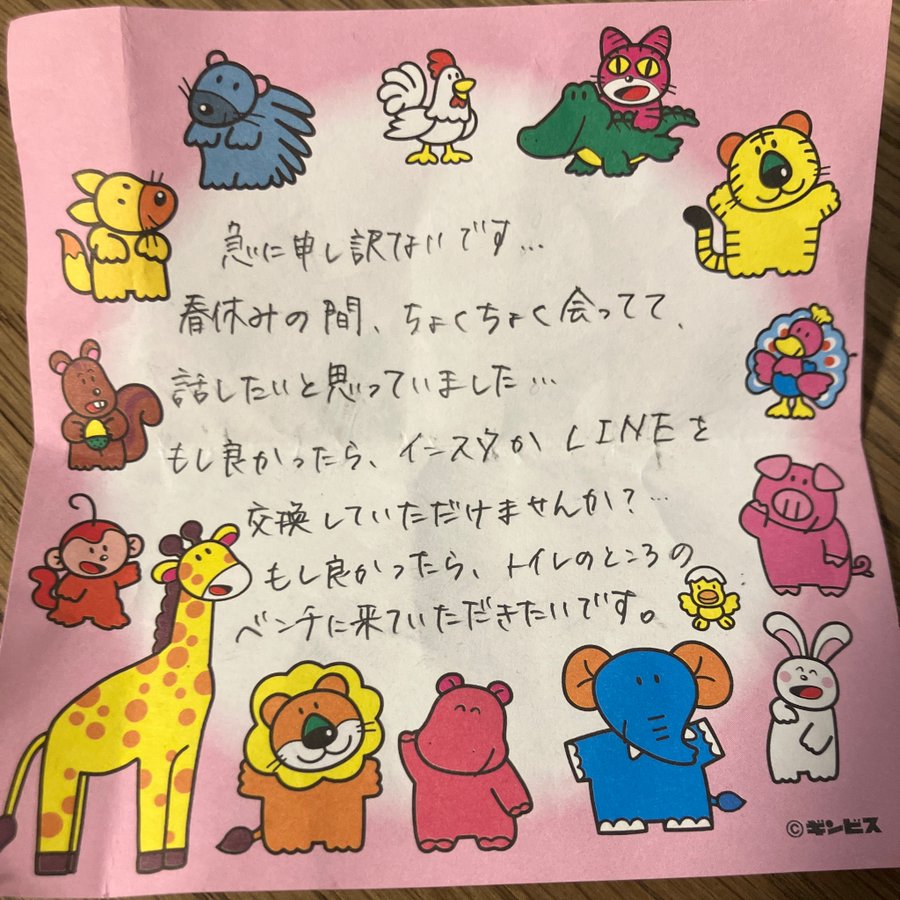 急に申し訳ないです…
春休みの間、ちょくちょく会ってて、
話したいと思っていました…
もし良かったら、インスタか LINEを
交換していただけませんか?…
もし良かったら、トイレのところの
ベンチに来ていただきたいです。
©ギンビス